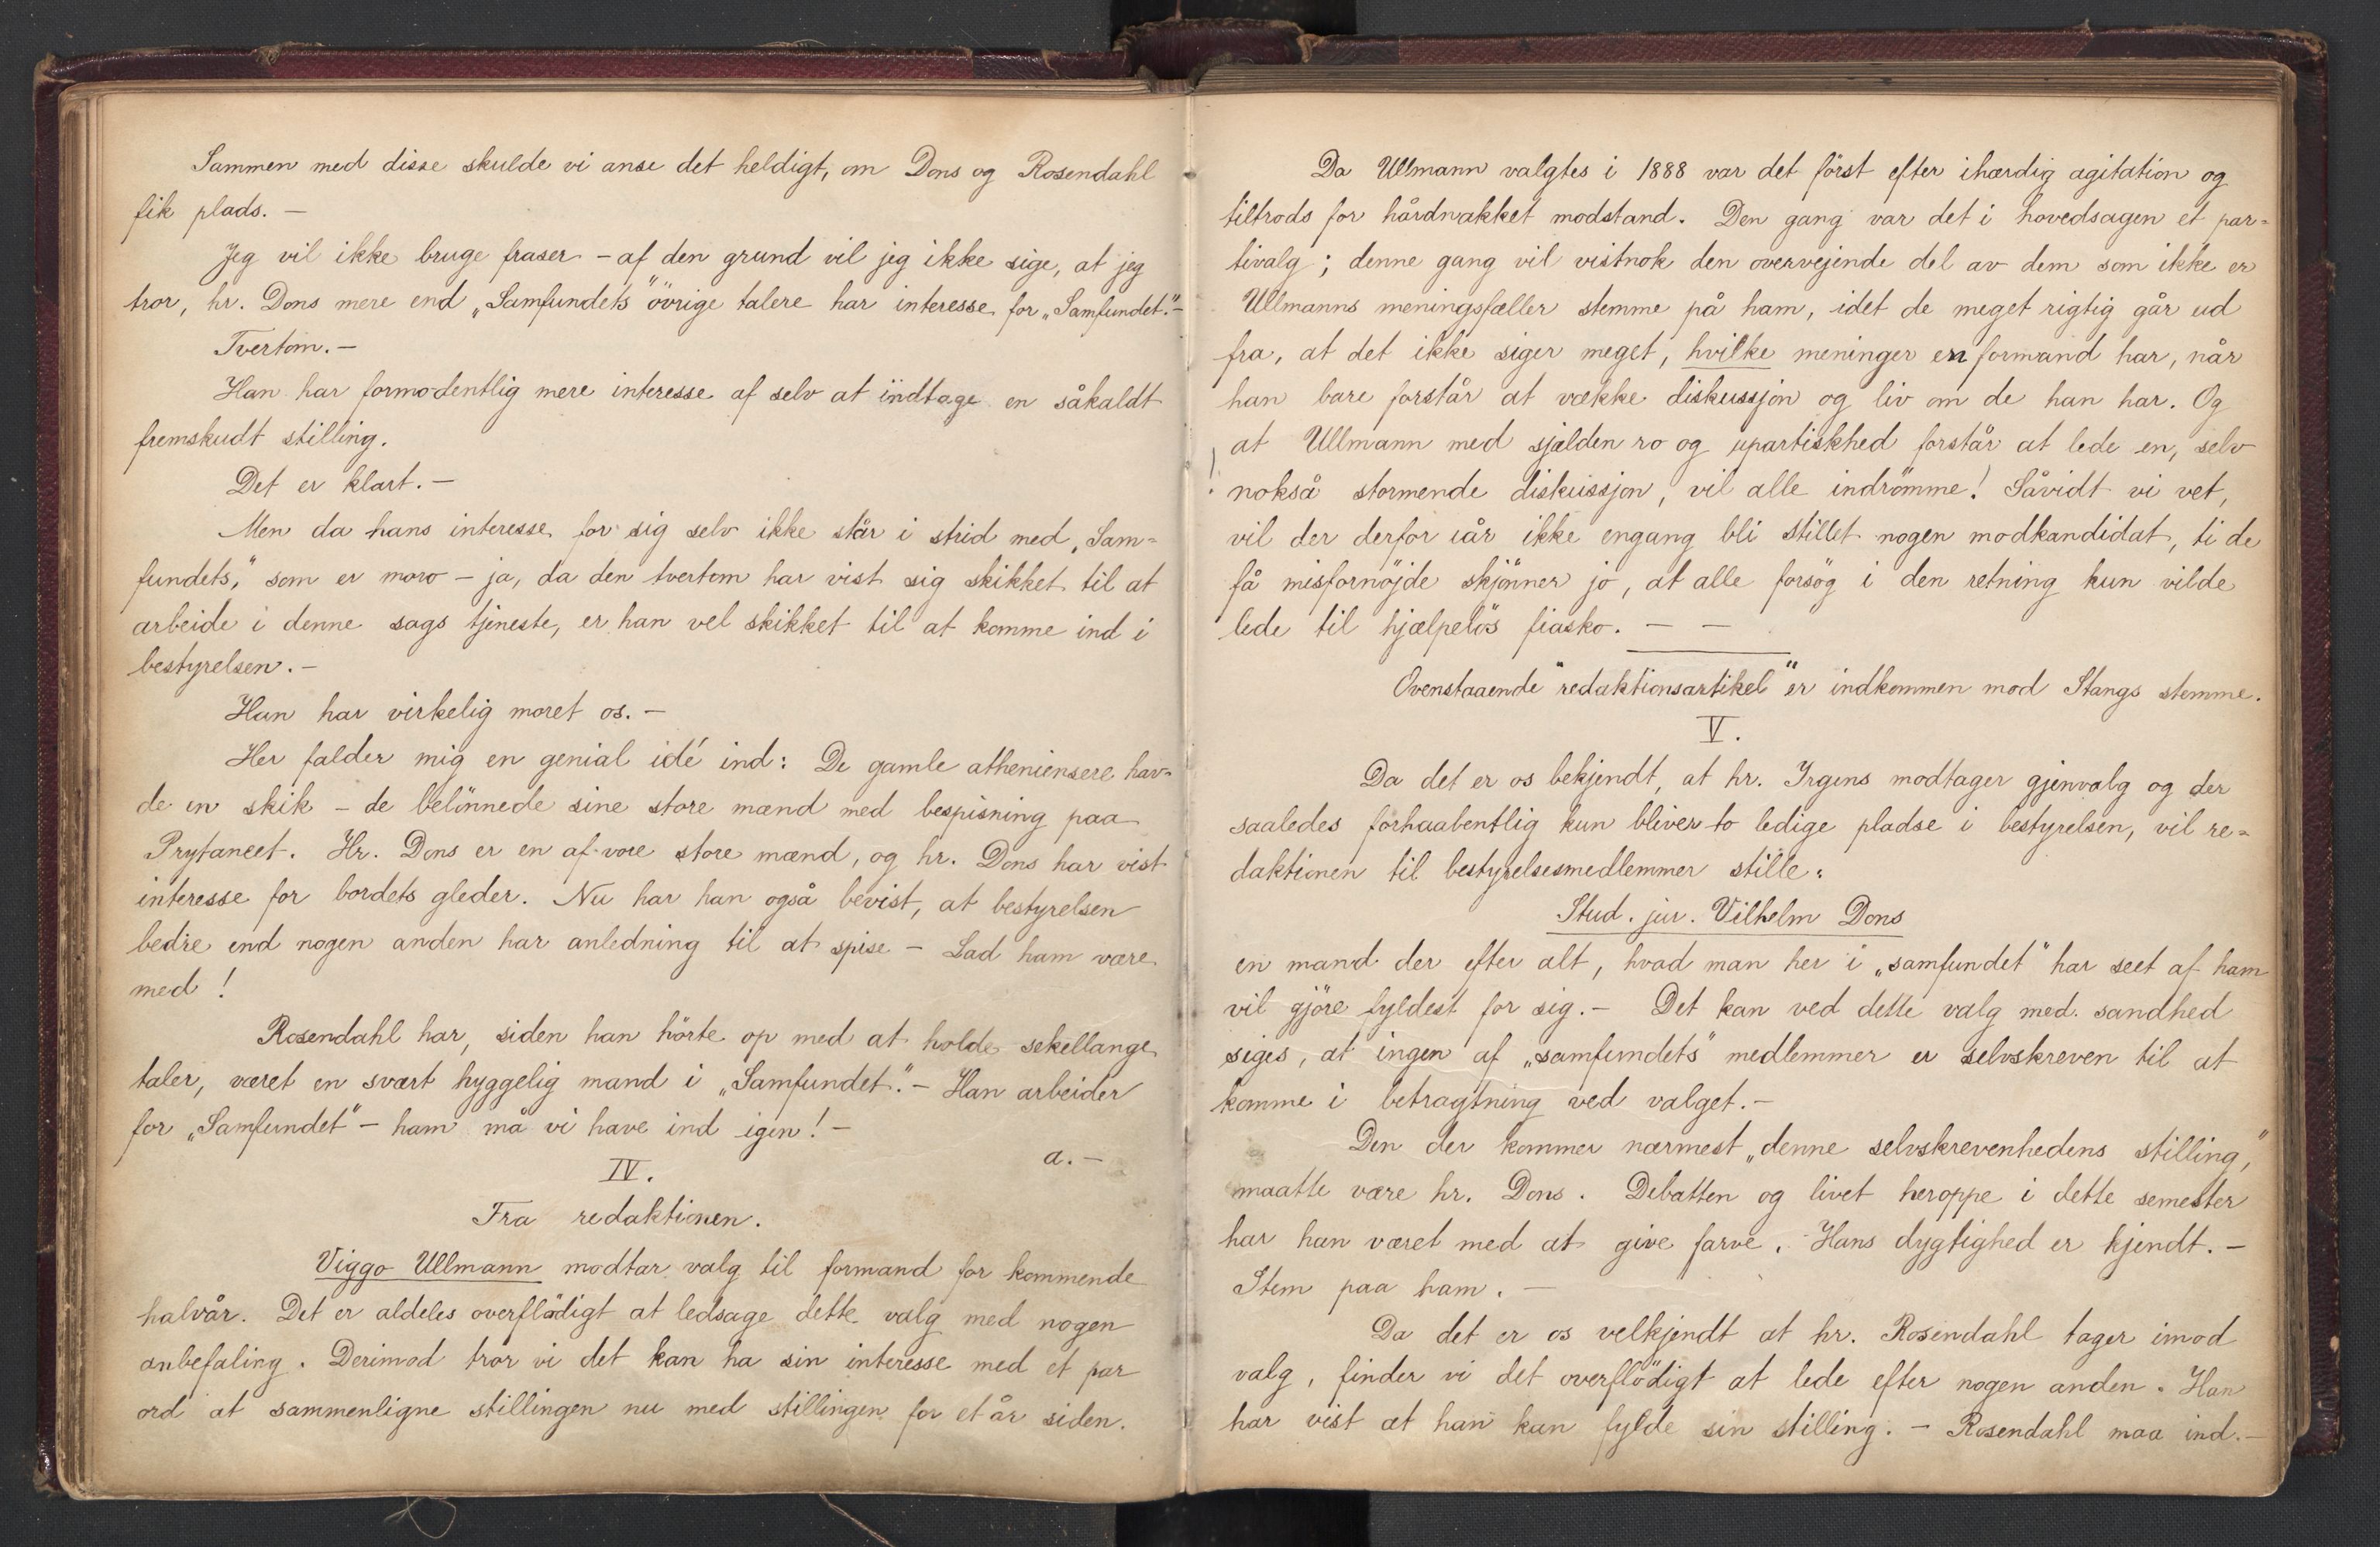 Sammen med disse skulde vi anse det heldigt, om Dons og Rosendahl
fik plads. —
Jeg vil ikke bruge fraser - af den grund vil jeg ikke sige, at jeg
tror, hr. Dons mere end „Samfundets" övrige talere har interesse for „Samfundet." -
Tvertom. -
Han har formodentlig mere interesse af selv at indtage en såkaldt
fremskudt stilling.
Det er klart. —
Men da hans interesse for sig selv ikke står i strid med „Sam=
fundets," som er moro - ja, da den tvertom har vist sig skikket til at
arbeide i denne sags tjeneste, er han vel skikket til at komme ind i
bestyrelsen. -
Han har virkelig moret os. -
Her falder mig en genial idé ind: De gamle atheniensere hav=
de en skik - de belönnede sine store mænd med bespisning paa
Prytaneet. Hr. Dons er en af vore store mænd, og hr. Dons har vist
interesse for bordets gleder. Nu har han også bevist, at bestyrelsen
bedre end nogen anden har anledning til at spise - Lad ham være
med!
Rosendahl har, siden han hörte op med at holde sekellange
taler, været en svært hyggelig mand i „Samfundet." - Han arbeider
for „Samfundet" - ham må vi have ind igen! -
a. -
IV.
Fra redaktionen.
Viggo Ullmann modtar valg til formand for kommende
halvår. Det er aldeles overflödigt at ledsage dette valg med nogen
anbefaling. Derimod tror vi det kan ha sin interesse med et par
ord at sammenligne stillingen nu med stillingen for et år siden.
Da Ullmann valgtes i 1888 var det först efter ihærdig agitation og
tiltrods for hårdnakket modstand. Den gang var det i hovedsagen et par=
tivalg; denne gang vil vistnok den overvejende del av dem som ikke er
Ullmanns meningsfæller stemme på ham, idet de meget rigtig går ud
fra, at det ikke siger meget, hvilke meninger en formand har, når
han bare forstår at vække diskussjon og liv om de han har. Og
at Ullmann med sjælden ro og upartiskhed forstår at lede en, selv
nokså stormende diskussjon, vil alle indrömme! Såvidt vi vet,
vil der derfor iår ikke engang bli stillet nogen modkandidat, ti de
få misfornöjde skjönner jo, at alle forsög i den retning kun vilde
lede til hjælpelös fiasko. — —
Ovenstaaende "redaktionsartikel" er indkommen mod Stangs stemme.
V.
Da det er os bekjendt, at hr. Irgens modtager gjenvalg og der
saaledes forhaabentlig kun bliver to ledige pladse i bestyrelsen, vil re=
daktionen til bestyrelsesmedlemmer stille:
Stud. jur. Vilhelm Dons
en mand der efter alt, hvad man her i „samfundet" har seet af ham
vil gjöre fyldest for sig. - Det kan ved dette valg med sandhed
siges, at ingen af „samfundets" medlemmer er selvskreven til at
komme i betragtning ved valget. -
Den der kommer nærmest „denne selvskrevenhedens stilling,"
maatte være hr. Dons. Debatten og livet heroppe i dette semester
har han været med at give farve. Hans dygtighed er kjendt. -
Stem paa ham. —
Da det er os velkjendt at hr. Rosendahl tager imod
valg, finder vi det overflödigt at lede efter nogen anden. Han
har vist at han kan fylde sin stilling. - Rosendahl maa ind. -